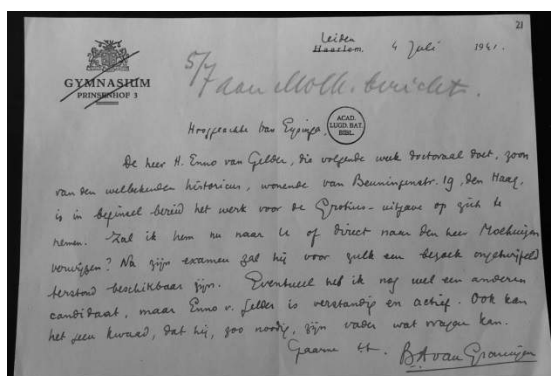 21
GYMNASIUM
PRINSENHOF 3
Leiden
Haarlem, 4 Juli 1941.
5/7 aan Molh. bericht.
Hooggeachte Van Eysinga,
ACAD.
LUGD. BAT.
BIBL.
De heer H. Enno van Gelder, die volgende week doctoraal doet, zoon
van den welbekenden historicus, wonende van Beuningenstr. 19, den Haag,
is in beginsel bereid het werk voor de Grotius-uitgave op zich te
nemen. Zal ik hem nu naar U of direct naar den heer Molhuijsen
verwijzen? Na zijn examen zal hij voor zulk een bezoek ongetwijfeld
terstond beschikbaar zijn. Eventueel heb ik nog wel een anderen
candidaat, maar Enno v. Gelder is verstandig en actief. Ook kan
het geen kwaad, dat hij, zoo noodig, zijn vader wat vragen kan.
Gaarne tt. BAvan Groningen